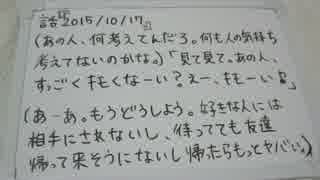 話『2015/10/17』
(あの人、何考えてんだろ。何も人の気持ち
考えてないのかな。)「見て見て。あの人、
すっごくキモくなーい？えー、キモーい」
(あーあ。もうどうしよう。好きな人には
相手にされないし、待ってても友達
帰って来そうにないし帰ったらもっとヤバい。)